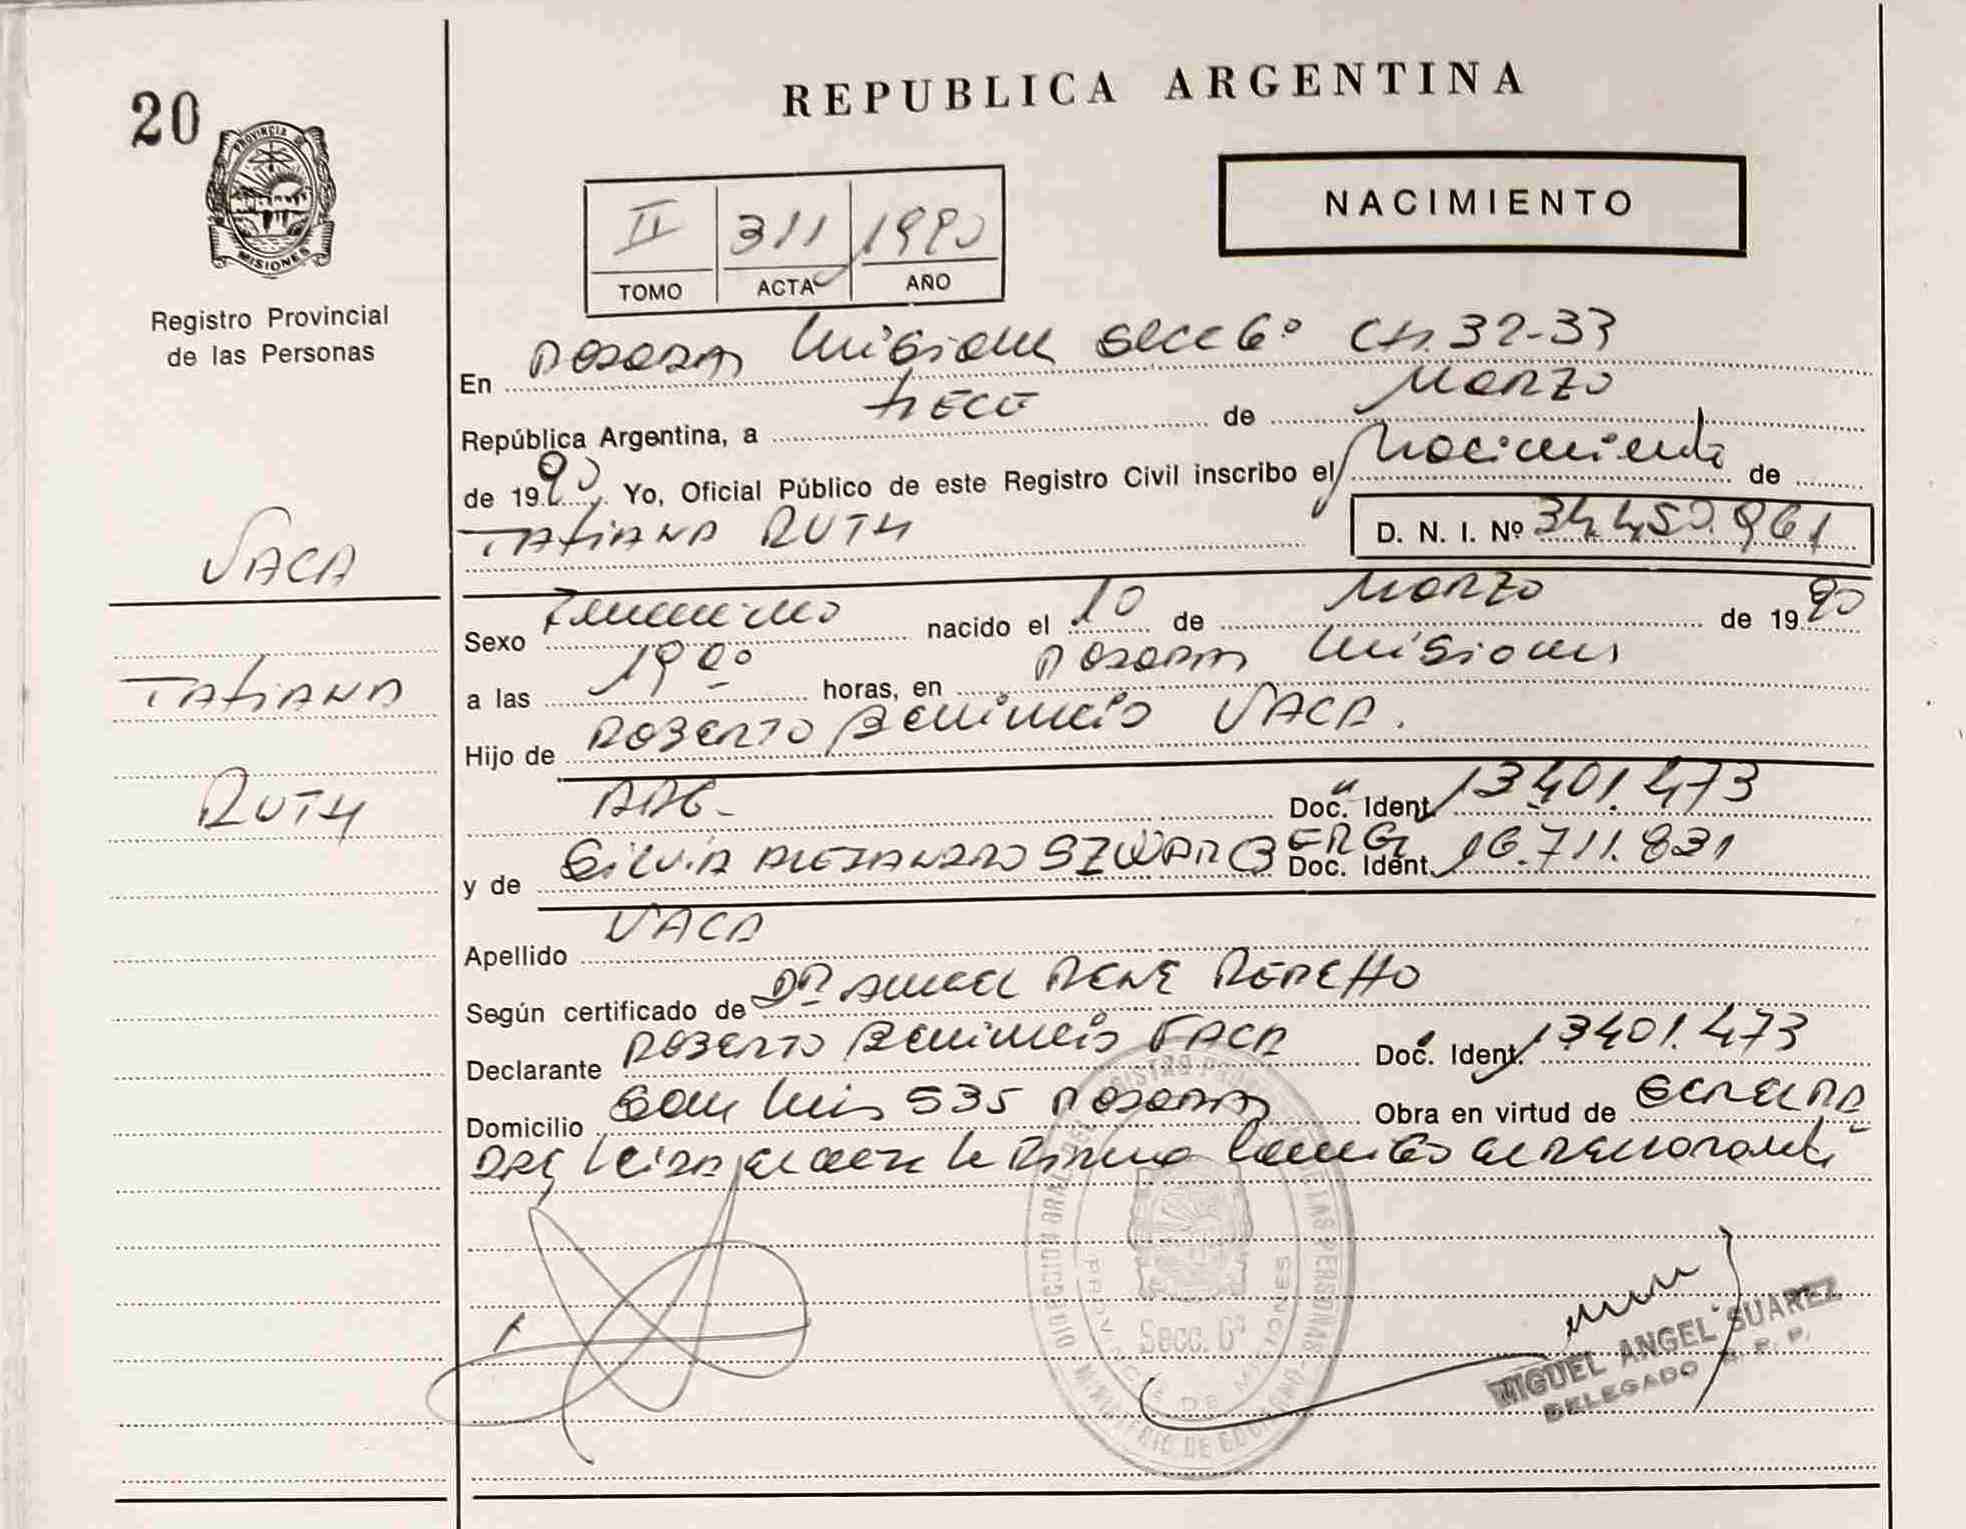 20
PROVINCIA DE
MISIONES
Registro Provincial
de las Personas
REPUBLICA ARGENTINA
II 311 1990
TOMO ACTA AÑO
NACIMIENTO
En Posadas Misiones Secc 6º Ch. 32-33
República Argentina, a trece de Marzo
de 1990. Yo, Oficial Público de este Registro Civil inscribo el Nacimiento de
TATIANA RUTH
D. N. I. Nº 34.450.961
VACA
TATIANA
RUTH
Sexo Femenino nacido el 10 de Marzo de 1990
a las 19 00 horas, en Posadas Misiones
Hijo de ROBERTO VACA.
ARG- Doc. Ident. 13401.473
y de SILVIA ALEJANDRA SZWARCBERG Doc. Ident. 16.711.831
Apellido VACA
Según certificado de DR RENE
Declarante ROBERTO VACA Doc. Ident. 13401.473
Domicilio San Luis 535 Posadas Obra en virtud de
Secc. 6ª
PROVINCIA DE MISIONES
MINISTERIO DE GOBIERNO
MIGUEL ANGEL SUAREZ
DELEGADO R. P. P.